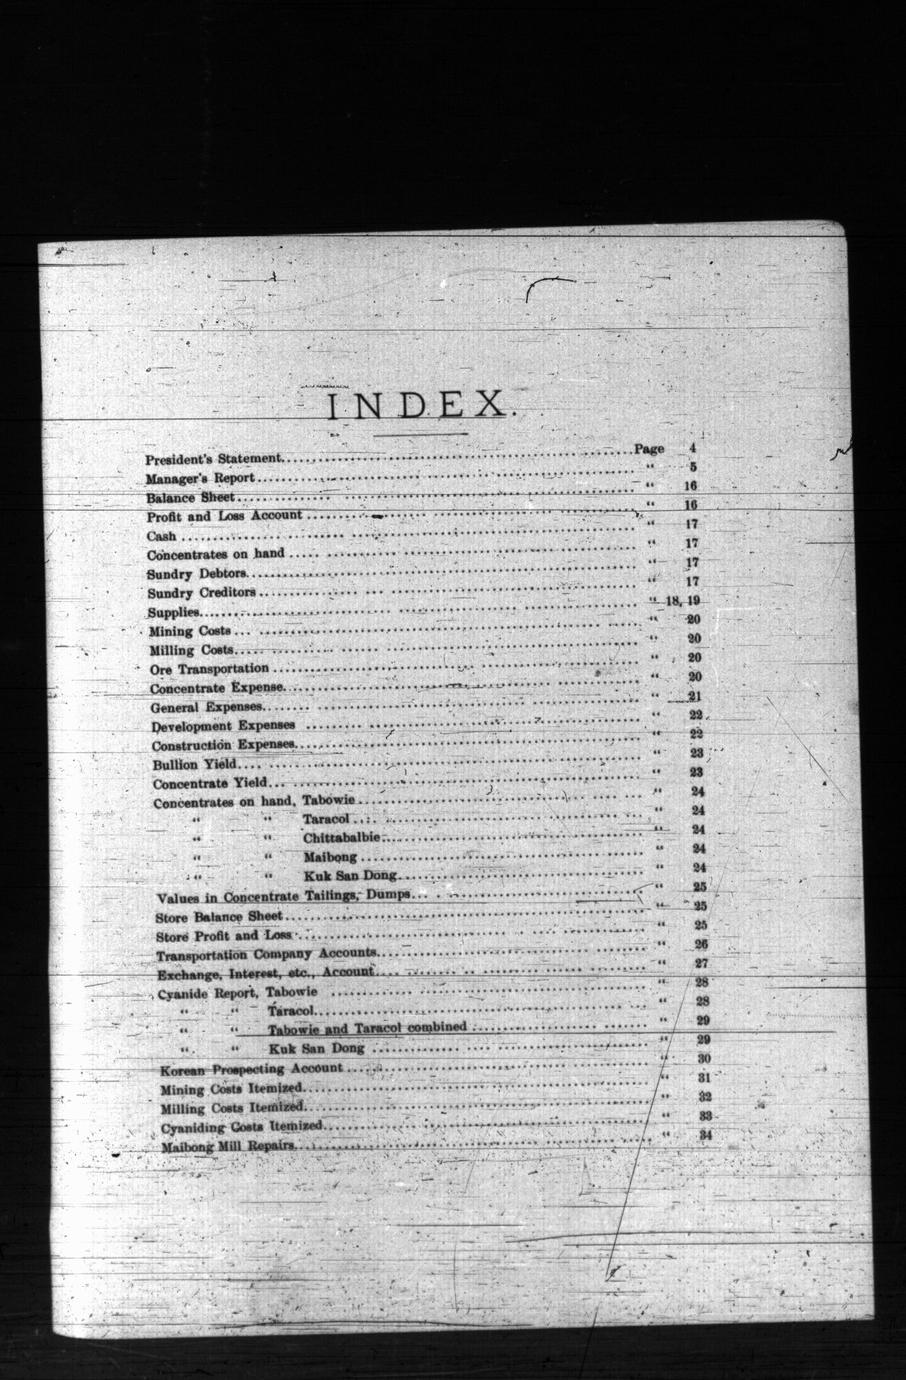 INDEX.
President's Statement.......... Page 4
Manager's Report.......... " 5
Balance Sheet.......... " 16
Profit and Loss Account.......... " 16
Cash.......... " 17
Concentrates on hand.......... " 17
Sundry Debtors.......... " 17
Sundry Creditors.......... " 17
Supplies.......... " 18, 19
Mining Costs.......... " 20
Milling Costs.......... " 20
Ore Transportation.......... " 20
Concentrate Expense.......... " 20
General Expenses.......... " 21
Development Expenses.......... " 22
Construction Expenses.......... " 22
Bullion Yield.......... " 23
Concentrate Yield.......... " 23
Concentrates on hand, Tabowie.......... " 24
" " Taracol.......... " 24
" " Chittabalbie.......... " 24
" " Maibong.......... " 24
" " Kuk San Dong.......... " 24
Values in Concentrate Tailings, Dumps.......... " 25
Store Balance Sheet.......... " 25
Store Profit and Loss.......... " 25
Transportation Company Accounts.......... " 26
Exchange, Interest, etc., Account.......... " 27
Cyanide Report, Tabowie.......... " 28
" " Taracol.......... " 28
" " Tabowie and Taracol combined.......... " 29
" " Kuk San Dong.......... " 29
Korean Prospecting Account.......... " 30
Mining Costs Itemized.......... " 31
Milling Costs Itemized.......... " 32
Cyaniding Costs Itemized.......... " 33
Maibong Mill Repairs.......... " 34